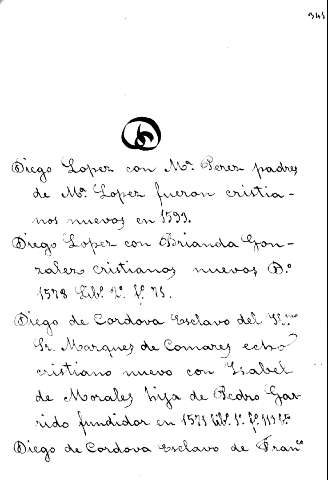 341
Diego Lopez con Mª. Perez padres
de Mª. Lopez fueron cristia-
nos nuevos en 1593.
Diego Lopez con Brianda Gon-
zalez cristianos nuevos Dº.
1578 Libº. 2º. fº. 75.
Diego de Cordova esclavo del
Sr. Marques de Comares echo
cristiano nuevo con Isabel
de Morales hija de Pedro Gar-
rido fundidor en 1571 Libº. 1º. fº. 119
Diego de Cordova esclavo de Franco